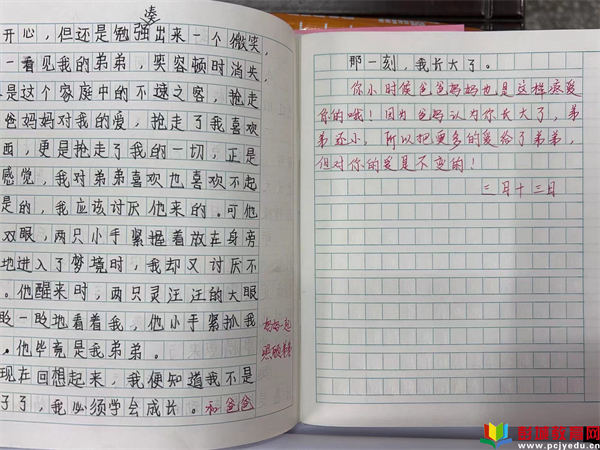 凑
开心，但还是勉强出来一个微笑，
一看见我的弟弟，笑容顿时消失，
是这个家族中的不速之客，抢走
爸妈妈对我的爱，抢走了我喜欢
西，更是抢走了我的一切，正是
感觉，我对弟弟喜欢也喜欢不起
是的，我应该讨厌他来的。可他
双眼，两只小手紧握着放在身旁
地进入了梦境时，我却又讨厌不
。他醒来时，两只灵汪汪的大眼
眨一眨地看着我，他小手紧抓我
。他毕竟是我弟弟。
妈妈一起
现在回想起来，我便知道我不是
子了，我必须学会成长。和爸爸
那一刻，我长大了。
你小时候爸爸妈妈也是这样疼爱
你的哦！因为爸妈认为你长大了，弟
弟还小，所以把更多的爱给了弟弟，
但对你的爱是不变的！
三月十三日
彭城教育网
www.pcjyedu.cn